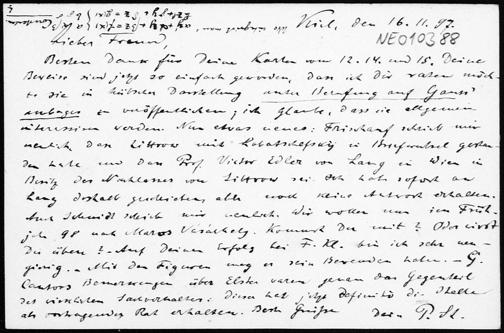 Kiel, den 16.11.97.
NE010388
Lieber Freund,
Besten Dank für Deine Karten vom 12. 14. und 15. Deine
Beweise sind jetzt so einfach geworden, dass ich Dir raten möch-
te sie in hübscher Darstellung unter Berufung auf Gauss
zu veröffentlichen; ich glaube, dass sie allgemein
interessiren werden. Nun etwas neues: Frischauf schrieb mir
neulich dass Littrow mit Lobatschefskij in Briefwechsel gestan-
den habe und dass Prof. Victor Edler von Lang in Wien im
Besitz des Nachlasses von Littrow sei. Ich habe sofort an
Lang deshalb geschrieben, aber noch keine Antwort erhalten.
Auch Schmidt schrieb mir neulich. Wir wollen nun im Früh-
jahr 98 nach Maros Vásárhely. Kommst Du mit? Oder wirst
Du üben? - Auf Deinen Erfolg bei F. Kl. bin ich sehr neu-
gierig. - Mit den Figuren mag es sein Bewenden haben. - G.
Cantors Bemerkungen über Elster waren genau das Gegenteil
des wirklichen Sachverhaltes: dieser hat jetzt definitiv die Stelle
als vortragender Rat erhalten. Beste Grüsse
Dein P. St.